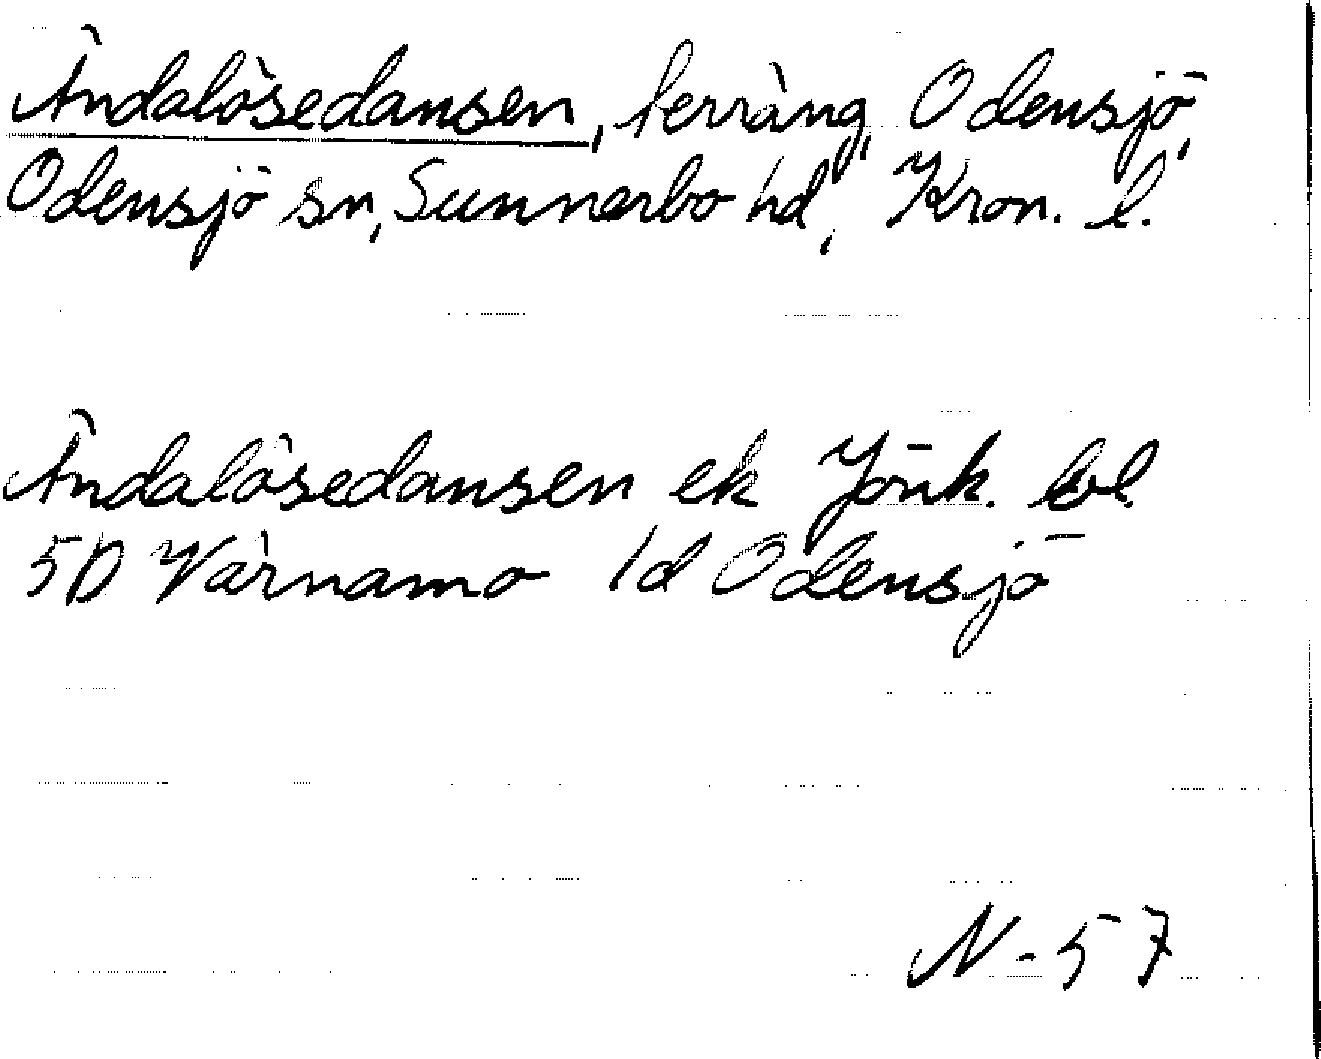 Ändalösedansen, terräng, Odensjö,
Odensjö sn, Sunnerbo hd, Kron. l.
Ändalösedansen ek Jönk. bl.
5D Värnamo 1d Odensjö
N-57